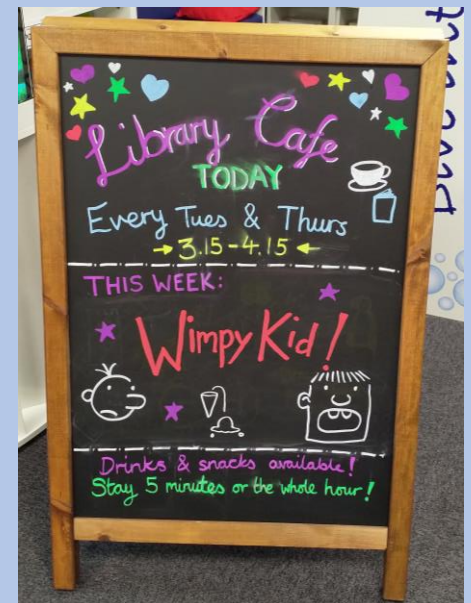 Library Cafe
TODAY
Every Tues & Thurs
→ 3.15-4.15 ←
THIS WEEK:
Wimpy Kid!
Drinks & snacks available!
Stay 5 minutes or the whole hour!